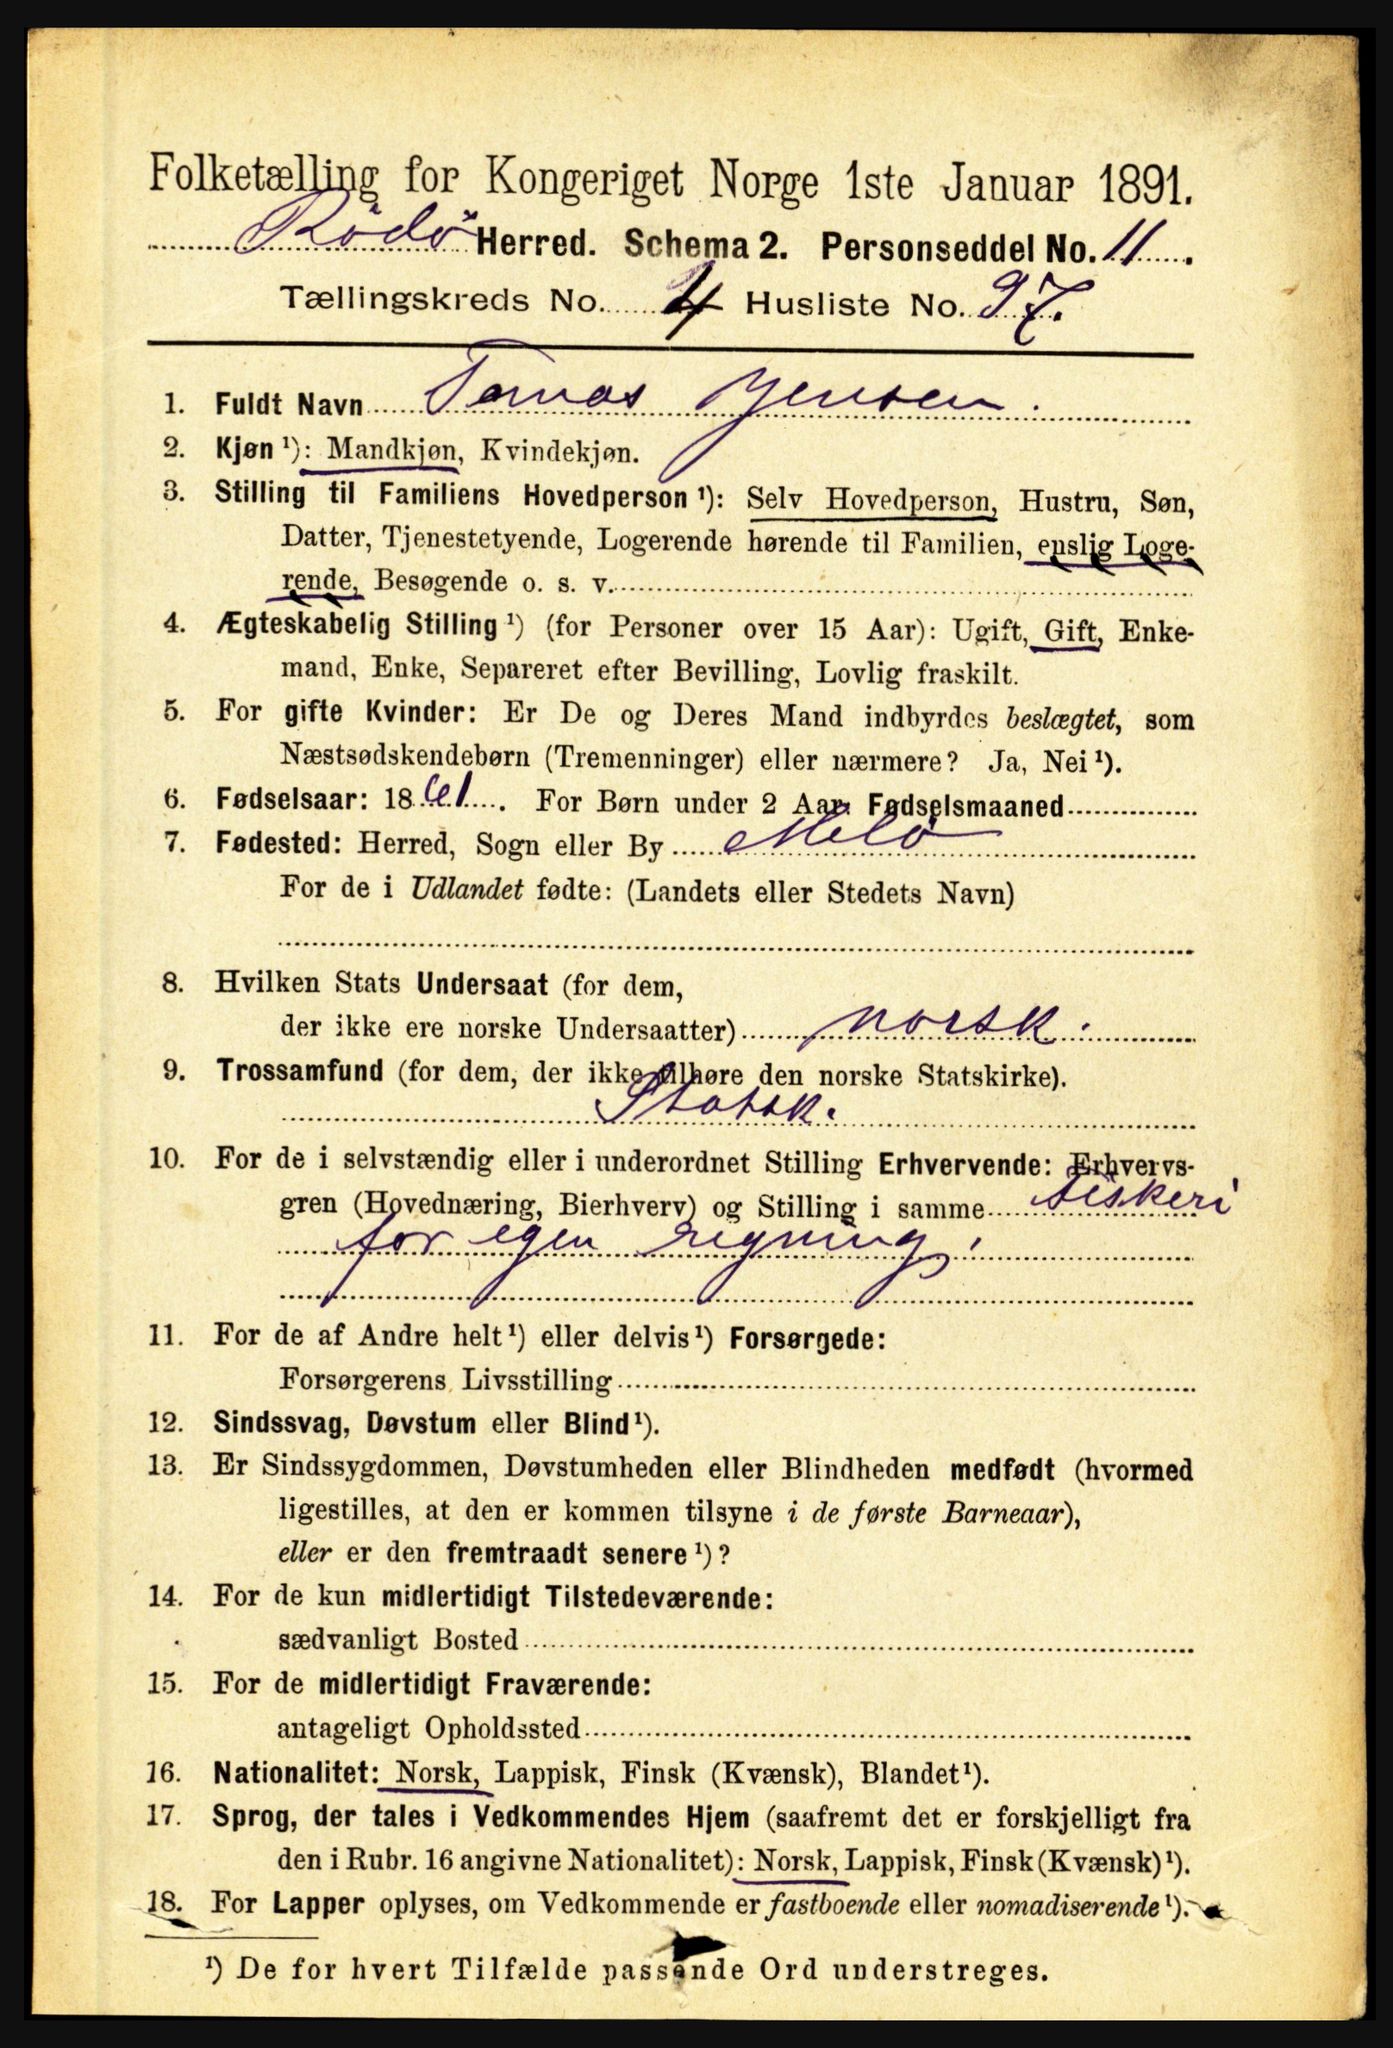 Folketælling for Kongeriget Norge 1ste Januar 1891.
Rödö Herred. Schema 2. Personseddel No. 11.
Tællingskreds No. 4 Husliste No. 97.
1. Fuldt Navn Tomas Jensen.
2. Kjøn ¹): Mandkjøn, Kvindekjøn.
3. Stilling til Familiens Hovedperson ¹): Selv Hovedperson, Hustru, Søn,
Datter, Tjenestetyende, Logerende hørende til Familien, enslig Loge-
rende, Besøgende o. s. v.
4. Ægteskabelig Stilling ¹) (for Personer over 15 Aar): Ugift, Gift, Enke-
mand, Enke, Separeret efter Bevilling, Lovlig fraskilt.
5. For gifte Kvinder: Er De og Deres Mand indbyrdes beslægtet, som
Næstsødskendebørn (Tremenninger) eller nærmere? Ja, Nei ¹).
6. Fødselsaar: 1861. For Børn under 2 Aar Fødselsmaaned
7. Fødested: Herred, Sogn eller By Melö
For de i Udlandet fødte: (Landets eller Stedets Navn)
8. Hvilken Stats Undersaat (for dem,
der ikke ere norske Undersaatter) norsk.
9. Trossamfund (for dem, der ikke tilhøre den norske Statskirke).
Statsk.
10. For de i selvstændig eller i underordnet Stilling Erhvervende: Erhvervs-
gren (Hovednæring, Bierhverv) og Stilling i samme fiskeri
for egen regning.
11. For de af Andre helt ¹) eller delvis ¹) Forsørgede:
Forsørgerens Livsstilling
12. Sindssvag, Døvstum eller Blind ¹).
13. Er Sindssygdommen, Døvstumheden eller Blindheden medfødt (hvormed
ligestilles, at den er kommen tilsyne i de første Barneaar),
eller er den fremtraadt senere ¹)?
14. For de kun midlertidigt Tilstedeværende:
sædvanligt Bosted
15. For de midlertidigt Fraværende:
antageligt Opholdssted
16. Nationalitet: Norsk, Lappisk, Finsk (Kvænsk), Blandet ¹).
17. Sprog, der tales i Vedkommendes Hjem (saafremt det er forskjelligt fra
den i Rubr. 16 angivne Nationalitet): Norsk, Lappisk, Finsk (Kvænsk) ¹).
18. For Lapper oplyses, om Vedkommende er fastboende eller nomadiserende ¹).
¹) De for hvert Tilfælde passende Ord understreges.